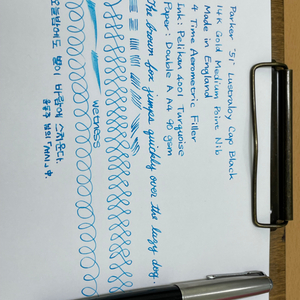 Parker '51' Lustraloy Cap Black
14K Gold Medium Point Nib
Made in England
4 Time Aerometric Filler
Ink: Pelikan 4001 Turquoise
Paper: Double A A4 90 gsm
The brown fox jumps quickly over the lazy dog.
wetness
오늘밤에도 별이 바람에 스치운다.
윤동주 님의 「서시」中.